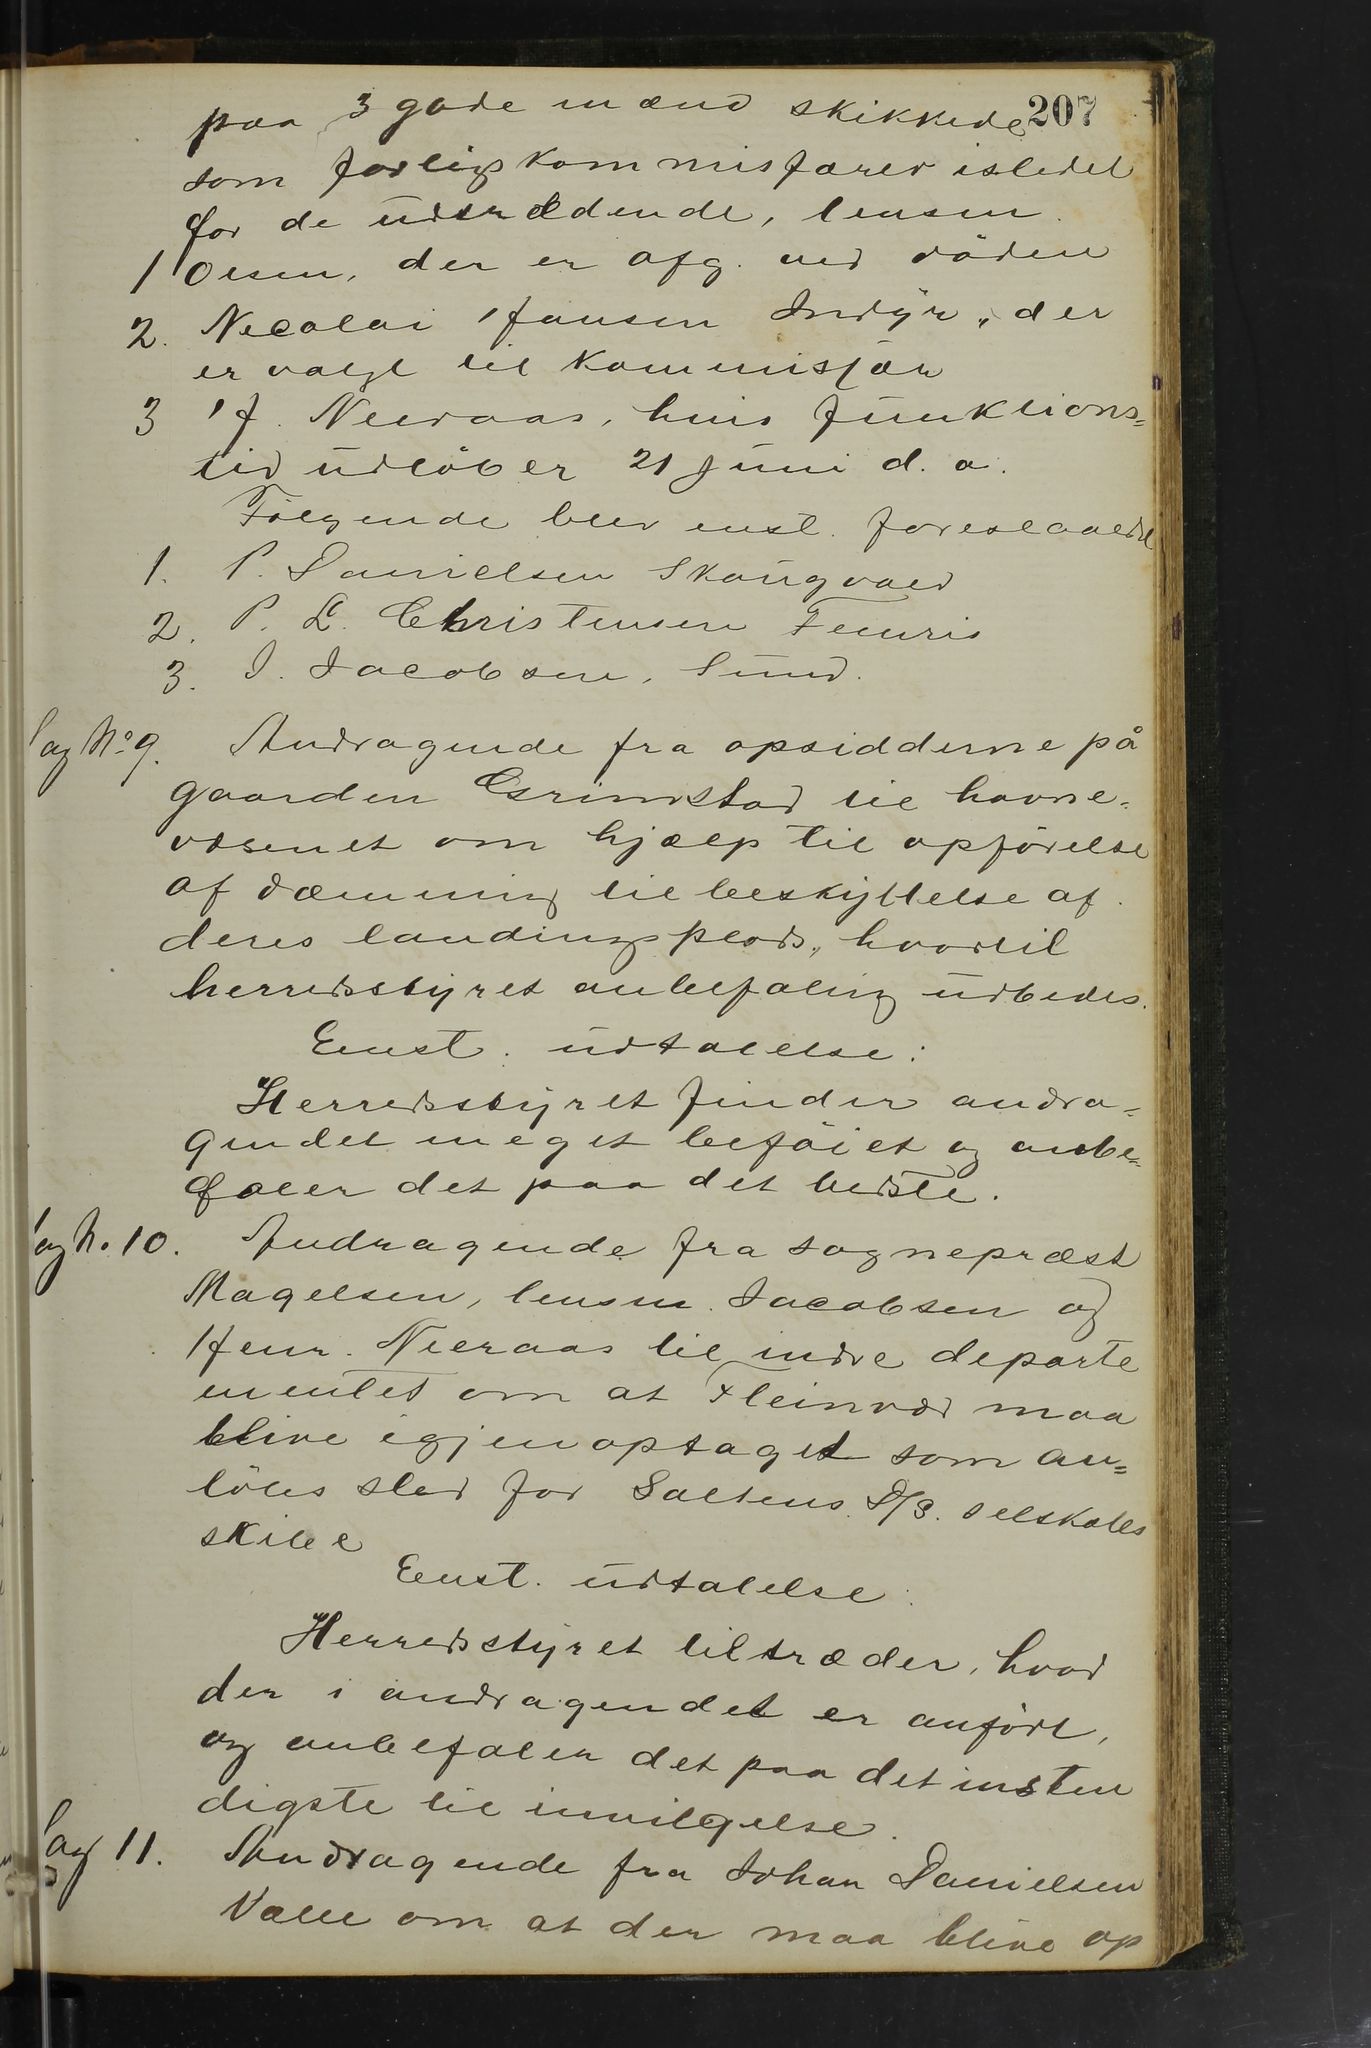 207
paa 3 gode mænd skikkede
som forligskommisærer istedet
for de udtrædende, lensm.
1 Olsen, der er afg. ved döden
2. Necolai Jansen Indyr, der
er valgt til kommisjær
3 J. Neeraas, hvis funktions=
tid udlöber 21 juni d. a.
Følgende blev enst. foreslaaede
1. P. Danielsen Skaugvold
2. P. L. Christensen Fenris
3. J. Jacobsen, Sund.
Sag No 9. Andragende fra opsidderne på
gaarden Grimstad til havne=
væsenet om hjælp til opförelse
af dæmning til beskyttelse af
deres landingsplads, hvortil
herredsstyrets anbefaling udbedes.
Enst. udtalelse:
Herredsstyret finder andra=
gendet meget beföiet og anbe=
faler det paa det bedste.
Sag N. 10. Andragende fra sognepræst
Magelsen, lensm. Jacobsen og
Henr. Neeraas til indre departe
mentet om at Fleinvær maa
blive igjenoptaget som an=
löbssted for Saltens D/S. selskabs
skibe
Enst. udtalelse:
Herredsstyret tiltræder, hvad
der i andragendet er anfört,
og anbefaler det paa det insten
digste til invilgelse.
Sag 11. Andragende fra Johan Danielsen
Valle om at der maa blive op